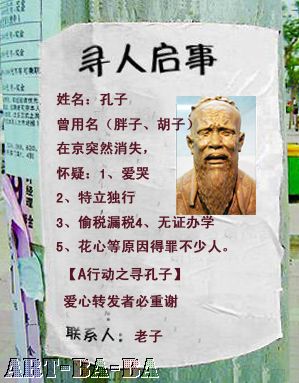 寻人启事
姓名：孔子
曾用名（胖子、胡子）
在京突然消失，
怀疑：1、爱哭
2、特立独行
3、偷税漏税4、无证办学
5、花心等原因得罪不少人。
【A行动之寻孔子】
爱心转发者必重谢
联系人：老子
ART-BA-BA